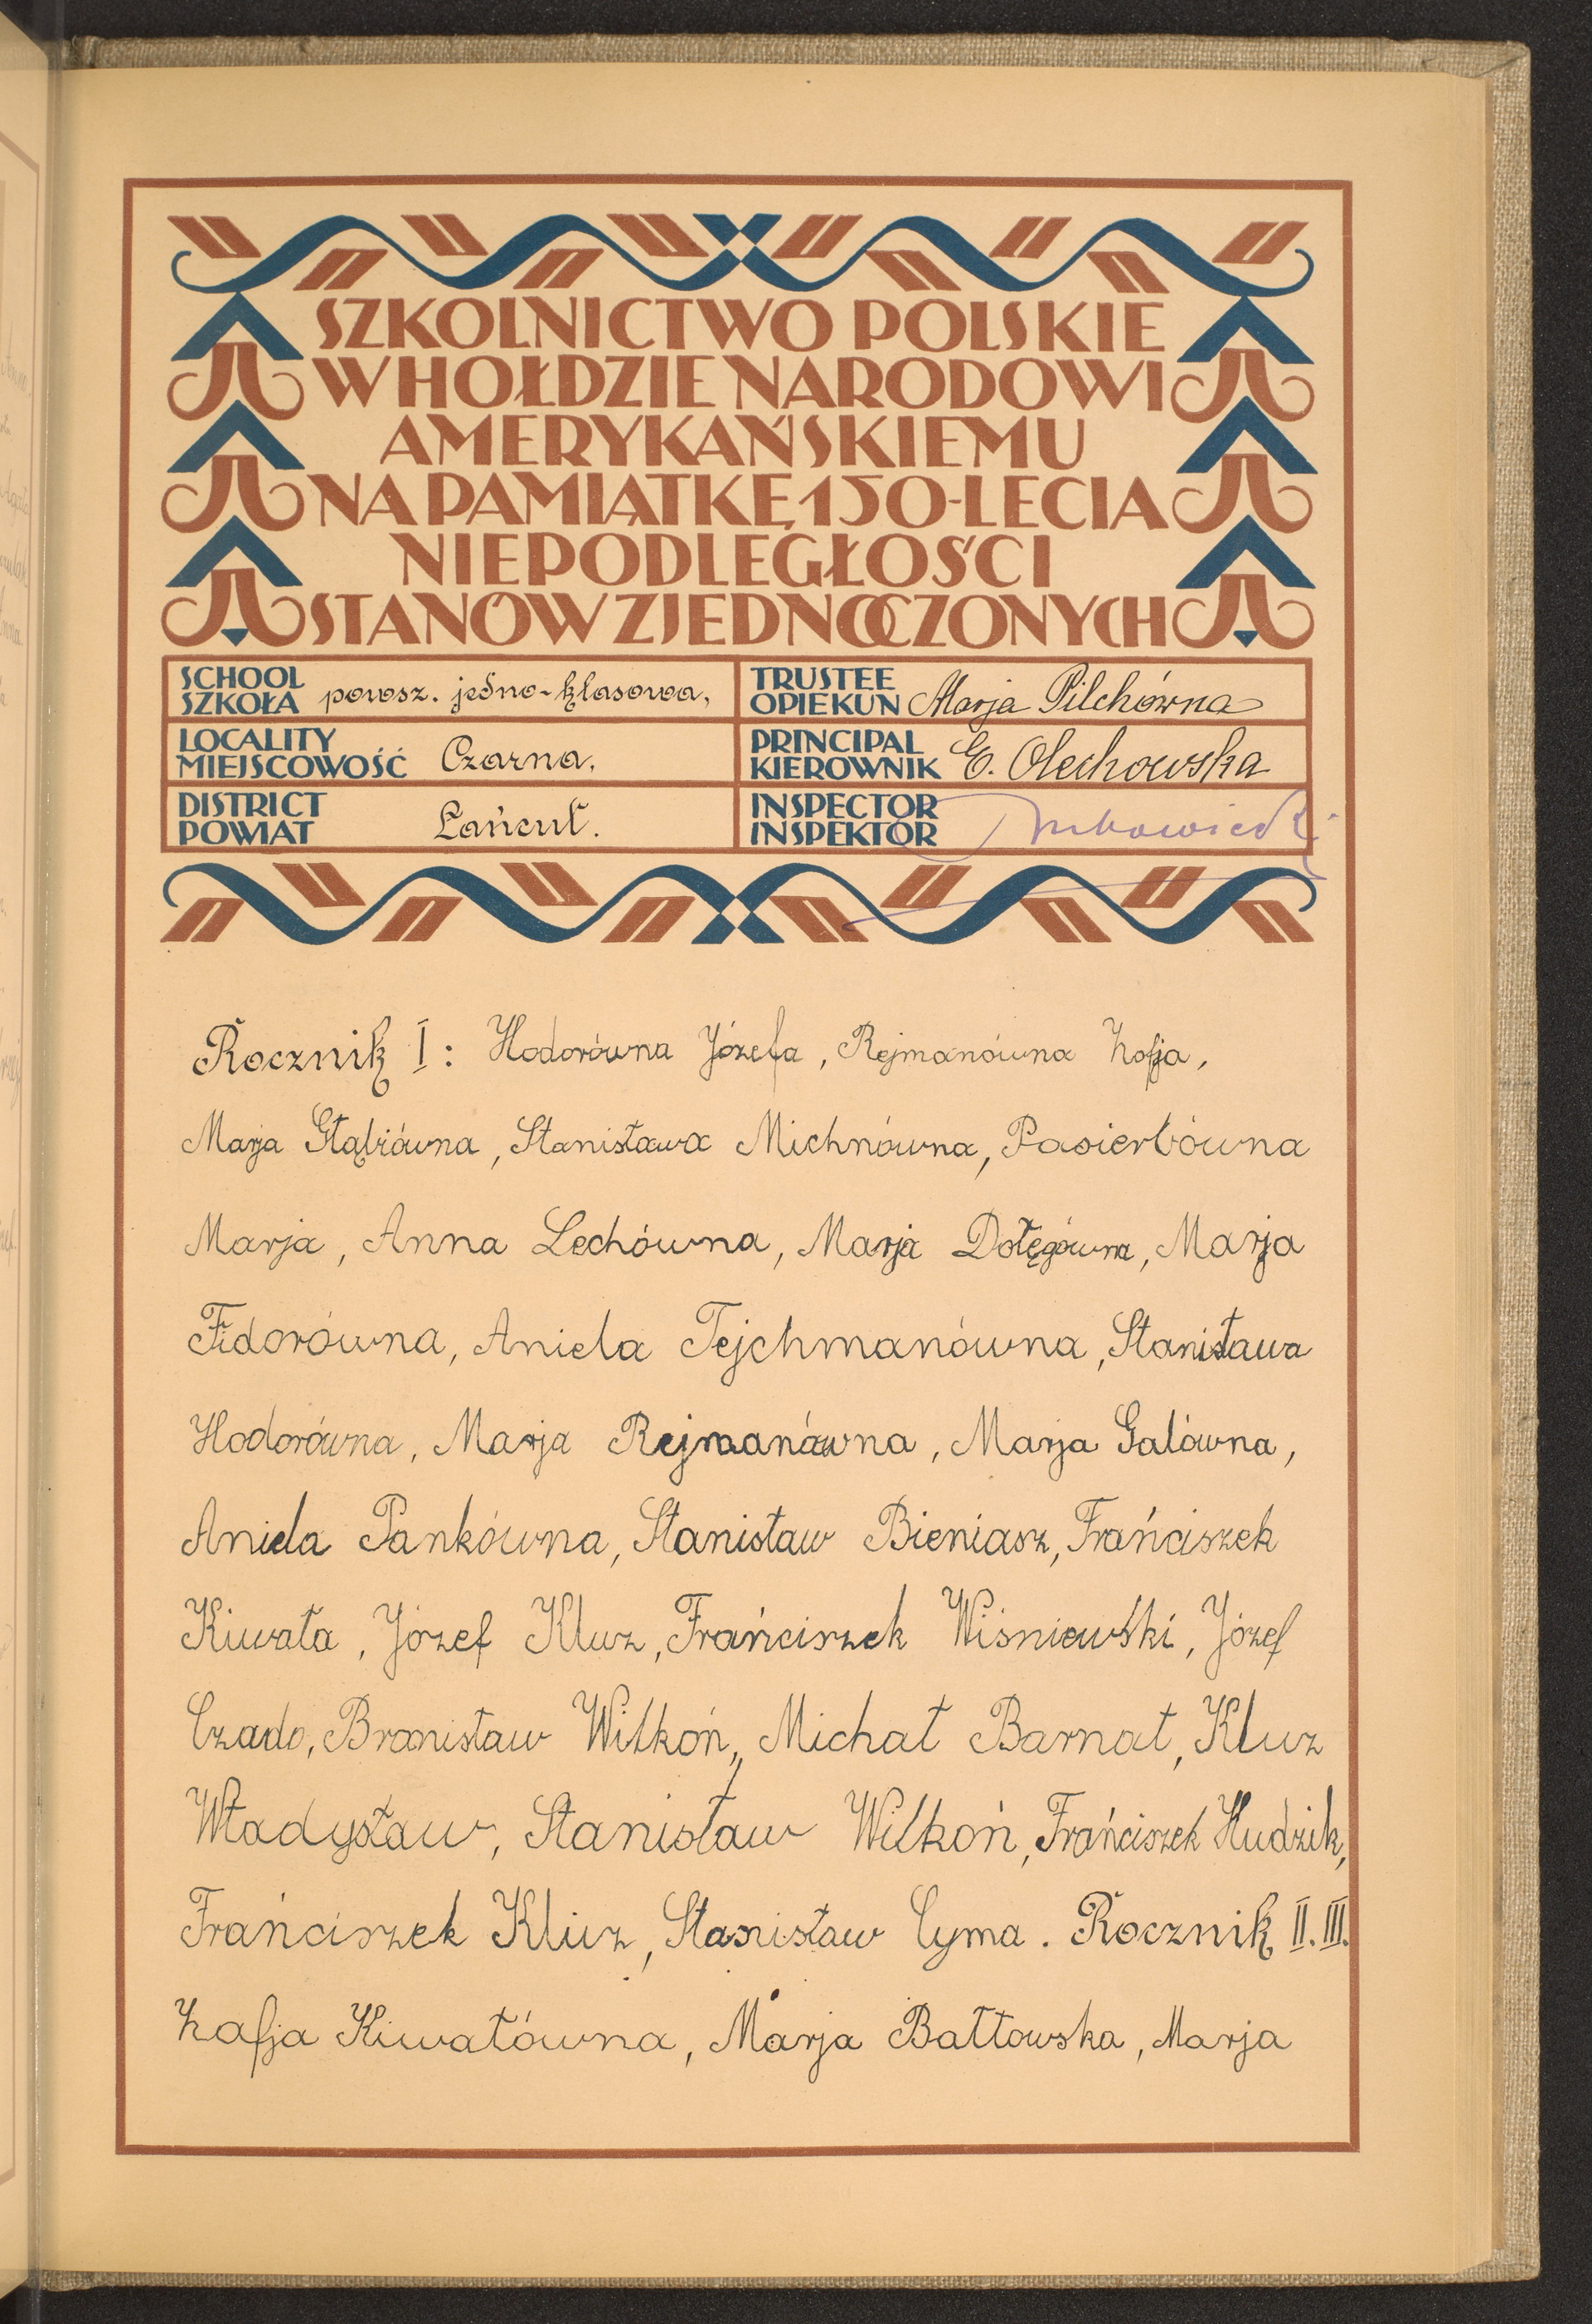 SZKOLNICTWO POLSKIE
W HOŁDZIE NARODOWI
AMERYKAŃSKIEMU
NA PAMIĄTKĘ 150-LECIA
NIEPODLEGŁOŚCI
STANÓW ZJEDNOCZONYCH
SCHOOL
SZKOŁA powsz. jedno-klasowa,
TRUSTEE
OPIEKUN Marja Pilchówna
LOCALITY
MIEJSCOWOŚĆ Czarna.
PRINCIPAL
KIEROWNIK E. Olechowska
DISTRICT
POWIAT Łańcut.
INSPECTOR
INSPEKTOR
Rocznik I: Hodorówna Józefa, Rejmanówna Zofja,
Marja Głąbiówna, Stanisława Michnówna, Pasierbówna
Marja, Anna Lechówna, Marja Dołęgówna, Marja
Fidorówna, Aniela Tejchmanówna, Stanisława
Hodorówna, Marja Rejmanówna, Marja Galówna,
Aniela Pankówna, Stanisław Bieniasz, Frańciszek
Kiwała, Józef Kluz, Frańciszek Wiśniewski, Józef
Czado, Bronisław Wilkoń, Michał Barnat, Kluz
Władysław, Stanisław Wilkoń, Frańciszek Hudzik,
Frańciszek Kluz, Stanisław Cyma. Rocznik II. III.
Zofja Kiwałówna, Marja Bałtowska, Marja